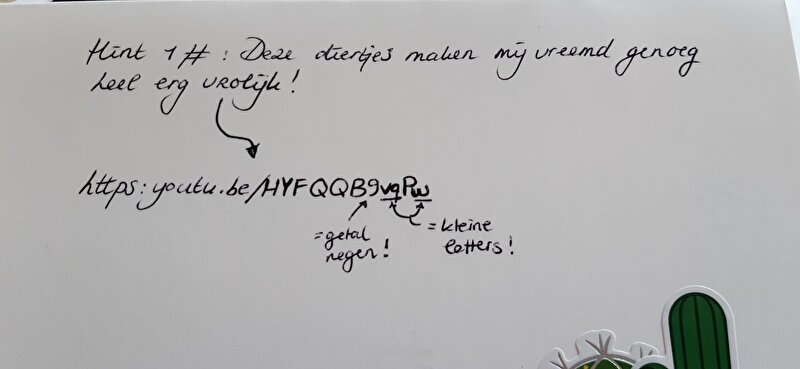 Hint 1# : Deze diertjes maken mij vreemd genoeg
heel erg vrolijk!
https:youtu.be/HYFQQB9vqPw
=getal
negen!
=kleine
letters!